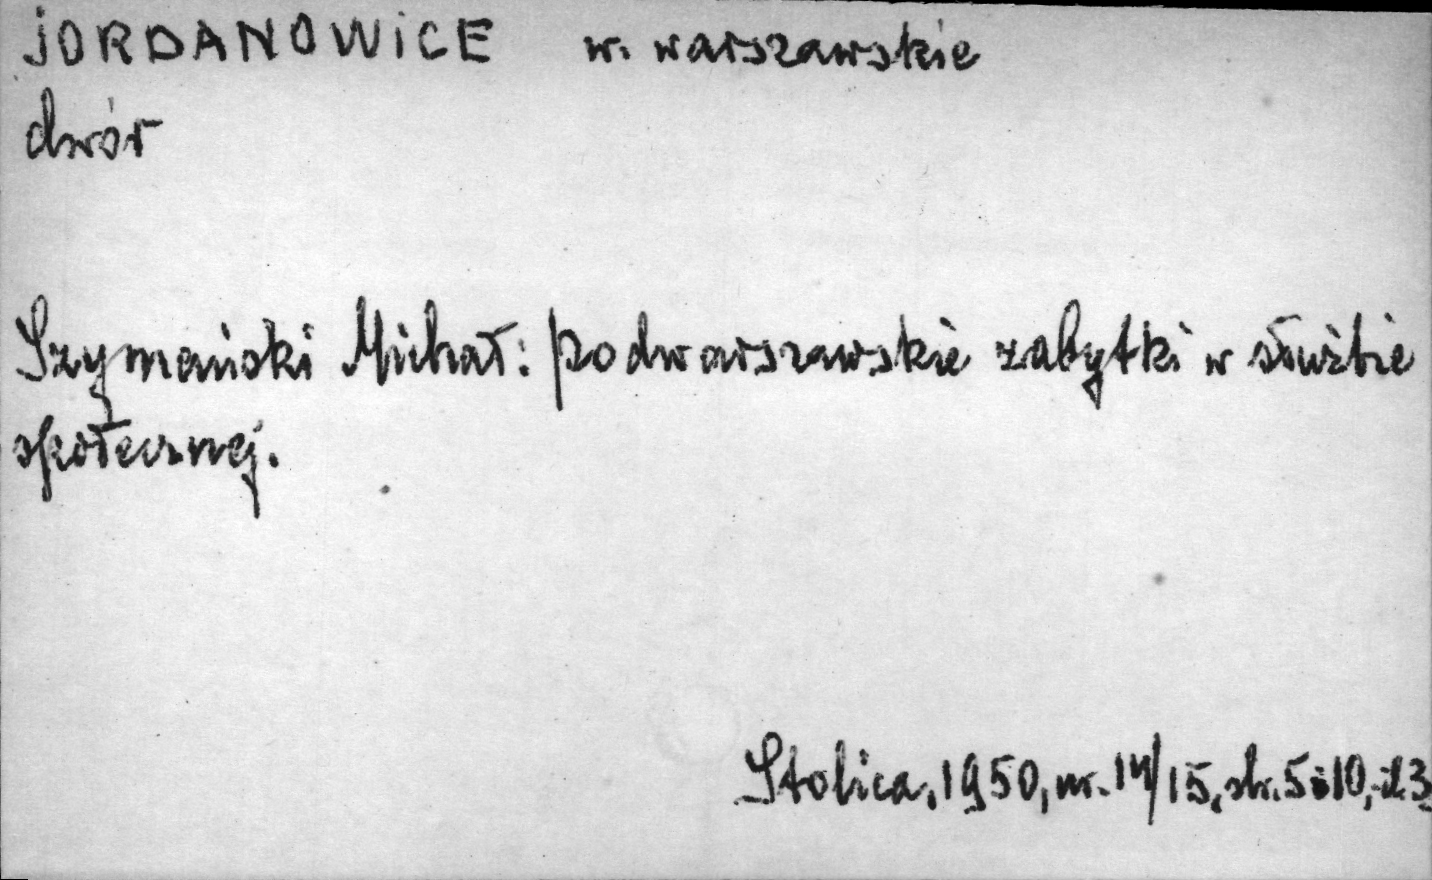 JORDANOWiCE w. warszawskie
dwór
Szymański Michał: podwarszawskie zabytki w służbie
społecznej.
Stolica, 1950, nr. 14/15, str. 5 i 10, il. 3